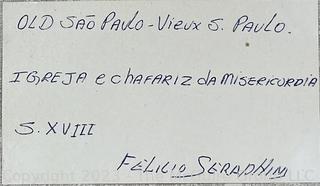 OLD SÃO PAULO - Vieux S. PAULO.
IGREJA e chafariz da MISERICORDIA
S. XVIII
FELICIO SERAPHIM